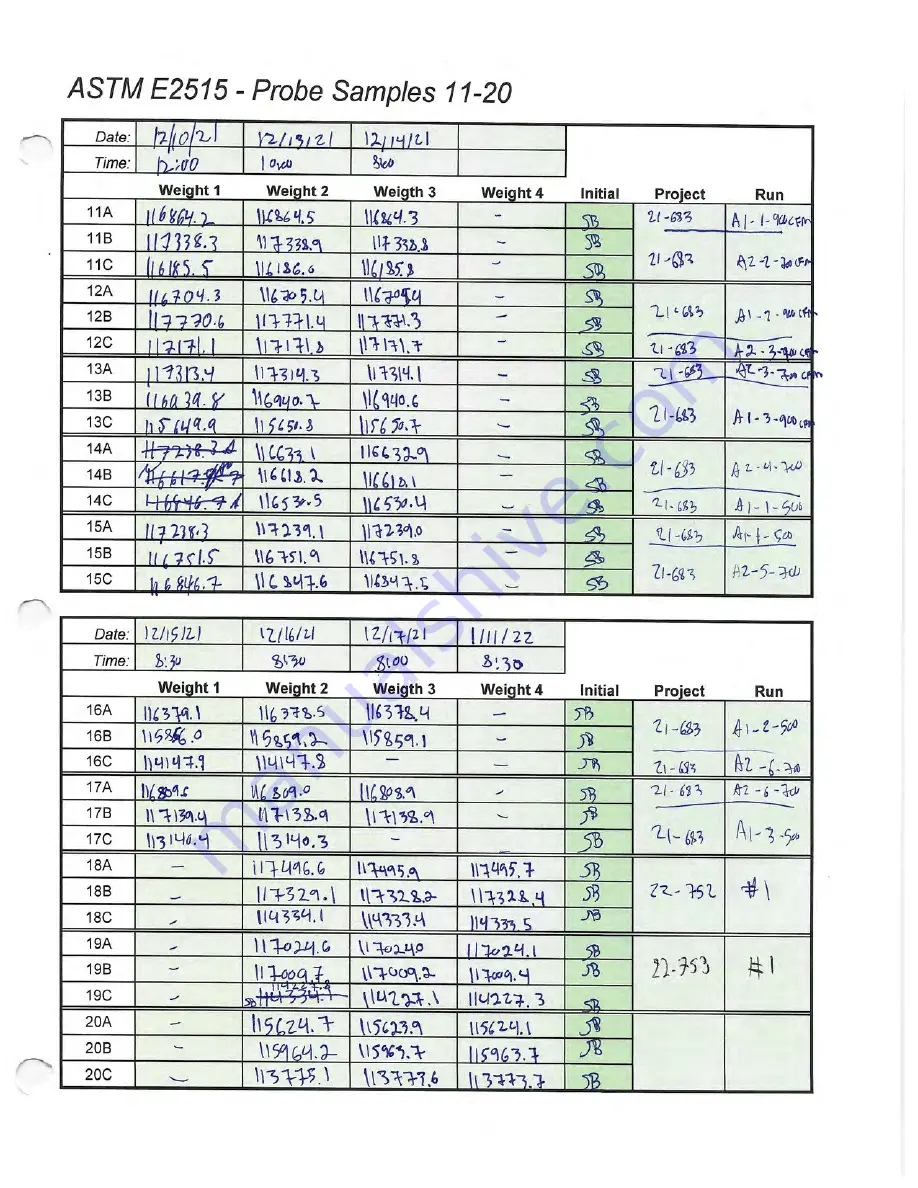 ASTM E2515 - Probe Samples 11-20
Date: 12/10/21 12/13/21 12/14/21
Time: 12:00 10:00 8:00
Weight 1 Weight 2 Weigth 3 Weight 4 Initial Project Run
11A 116864.2 116864.5 116864.3 - SB 21-683 A1-1-900CFM
11B 117338.3 117338.9 117338.8 - SB
11C 116185.5 116186.0 116185.8 - SB 21-683 A2-2-700CFM
12A 116704.3 116705.4 116705.4 - SB
12B 117770.6 117771.4 117771.3 - SB 21-683 A1-2-900CFM
12C 117171.1 117171.8 117171.7 - SB 21-683 A2-3-700CFM
13A 117313.4 117314.3 117314.1 - SB 21-683 A2-3-700CFM
13B 116939.8 116940.7 116940.6 - SB
13C 115649.9 115650.8 115650.7 - SB 21-683 A1-3-900CFM
14A 117238.3 116633.1 116632.9 - SB
14B 116618.2 116618.1 - SB 21-683 A2-4-700
14C 116846.7 116530.5 116530.4 - SB 21-683 A1-1-500
15A 117238.3 117239.1 117239.0 - SB 21-683 A1-1-500
15B 116751.5 116751.9 116751.8 - SB
15C 116846.7 116847.6 116847.5 - SB 21-683 A2-5-700
Date: 12/15/21 12/16/21 12/17/21 1/11/22
Time: 8:30 8:30 8:00 8:30
Weight 1 Weight 2 Weigth 3 Weight 4 Initial Project Run
16A 116379.1 116378.5 116378.4 - SB
16B 115859.2 115859.1 - SB 21-683 A1-2-500
16C 114147.9 114147.8 - - SB 21-683 A2-6-700
17A 116809.0 116808.9 - SB 21-683 A2-6-700
17B 117139.4 117138.9 117138.9 - SB
17C 113140.4 113140.3 - SB 21-683 A1-3-500
18A - 117496.6 117495.9 117495.7 SB
18B - 117329.1 117328.2 117328.4 SB 22-752 #1
18C - 114334.1 114333.4 114333.5 SB
19A - 117024.6 117024.0 117024.1 SB
19B - 117009.7 117009.2 117009.4 SB 22-753 #1
114227.8
19C - SB 114334.1 114227.1 114227.3 SB
20A - 115624.7 115623.9 115624.1 SB
20B - 115964.2 115963.7 115963.7 SB
20C - 113775.1 113773.6 113773.7 SB
manualshive.com